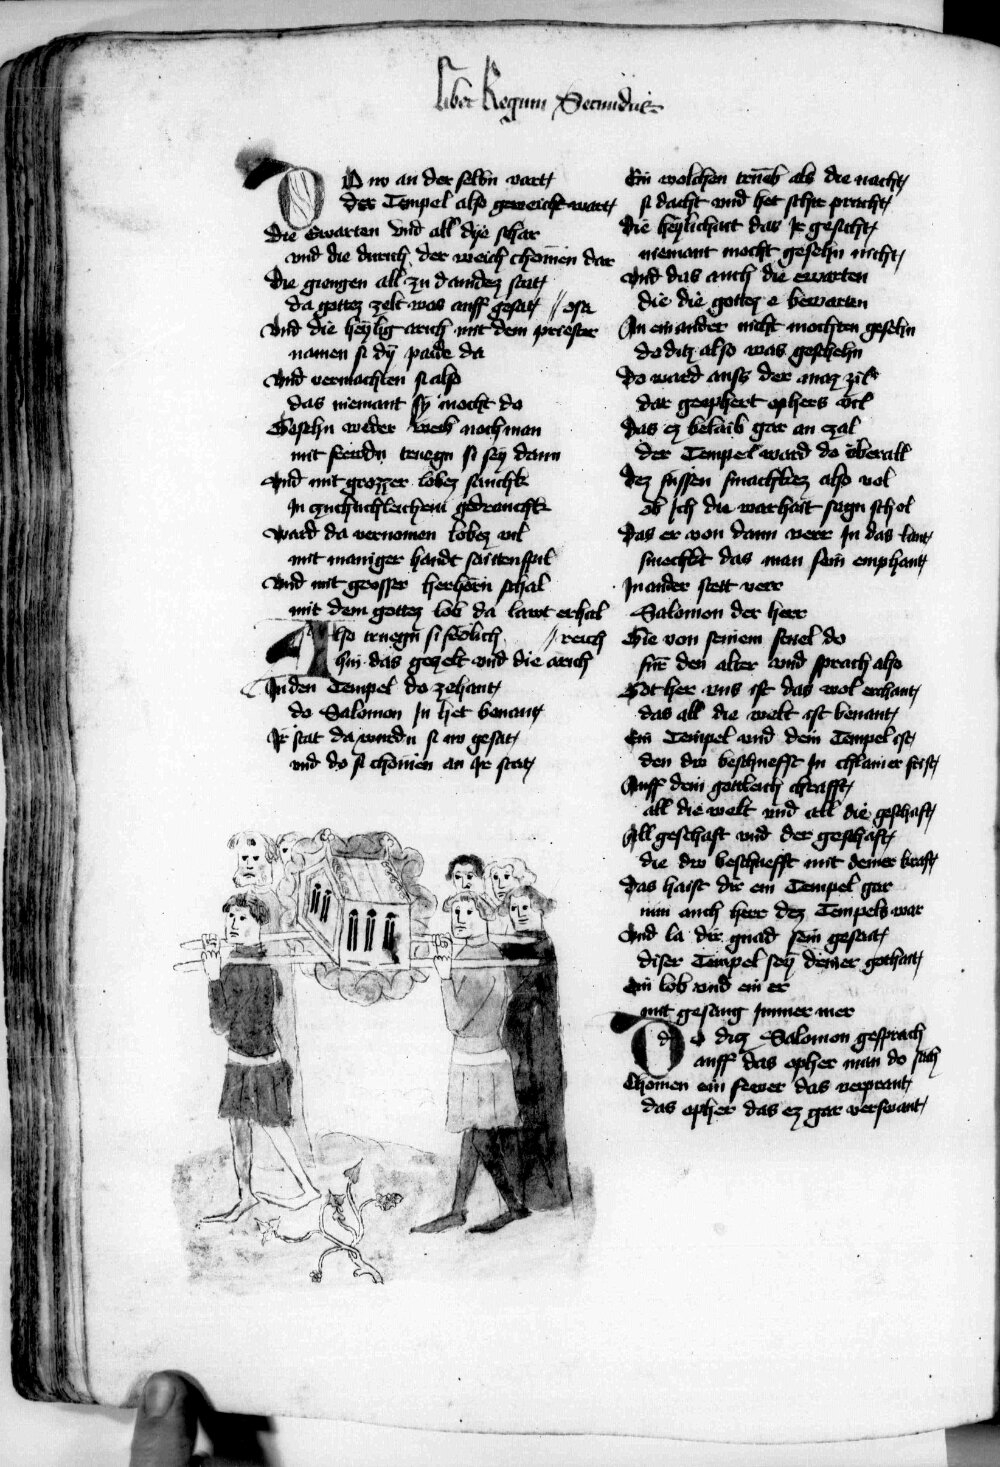 liber Regum Secundus
Do nw an der selbn vart
der Tempel also geweicht wart
Die Ewarten vnd all dye schar
vnd die durich der weich chomen dar
Die giengen all zu dander stat
da gottez zelt was auff gesat
Vnd die heylig arich mit dem priester
namen si dy paide da
Vnd vermachten si also
das niemant sy mocht do
Gesehn weder weib noch man
mit frewdn truegn si sey dann
Vnd mit grozzer lobez
In
Ward da vernomen lobez vil
mit maniger handt saittenspil
Vnd mit grosser herhorn schal
mit dem gottez lob da lawt erhal
Also truegn si frolich // reich
hin das gezelt vnd die arich
In den Tempel do zehant
do Salomon In het benant
Ir stat da wurdn si nw gesat
vnd do si chomen an Ir stat
Ein wolchen trueb als die nacht
si dacht vnd het schir pracht
Die heylichait das Ir gesicht
niemant mocht gesehn nicht
Vnd das auch die ewarten
die die gottez e bewarten
An einander nicht mochten gesehn
do ditz also was geschehn
Do ward auff der
dar geophert ophers vil
Das ez belaib gar an czal
der Tempel ward do vberall
Dez suessen smachkez also vol
ob Ich die warhait sagn schol
Das er von dann verr In das lant
smechkt das man sein emphant
In ander stett verr
Salomon der herr
Gie von seinem stuel do
fur den alter vnd sprach also
Got her vns ist das wol erchant
das all die welt ist benant
Ein Tempel vnd dein Tempel ist
den dw beschuefft In chlainer frist
Auff dein gottleich chrafft
all die welt vnd all die geschaft
All geschaft vnd der geschaft
die dw beschuefft mit deiner kraft
Das haist dir ein Tempel gar
nim auch herr dez Tempels war
Vnd la dir gnad sein gesait
diser Tempel sey deiner gothait
Ein lob vnd ein er
mit gesang Immer mer
Do ditz Salomon gesprach
auff das opher man do sach
Chomen ein fewer das verprant
das opher das ez gar verswant